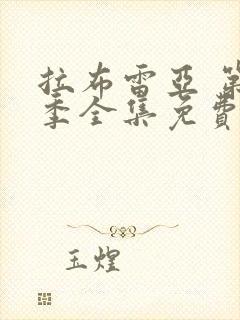 拉布雷亚 第
季全集免费
玉煌